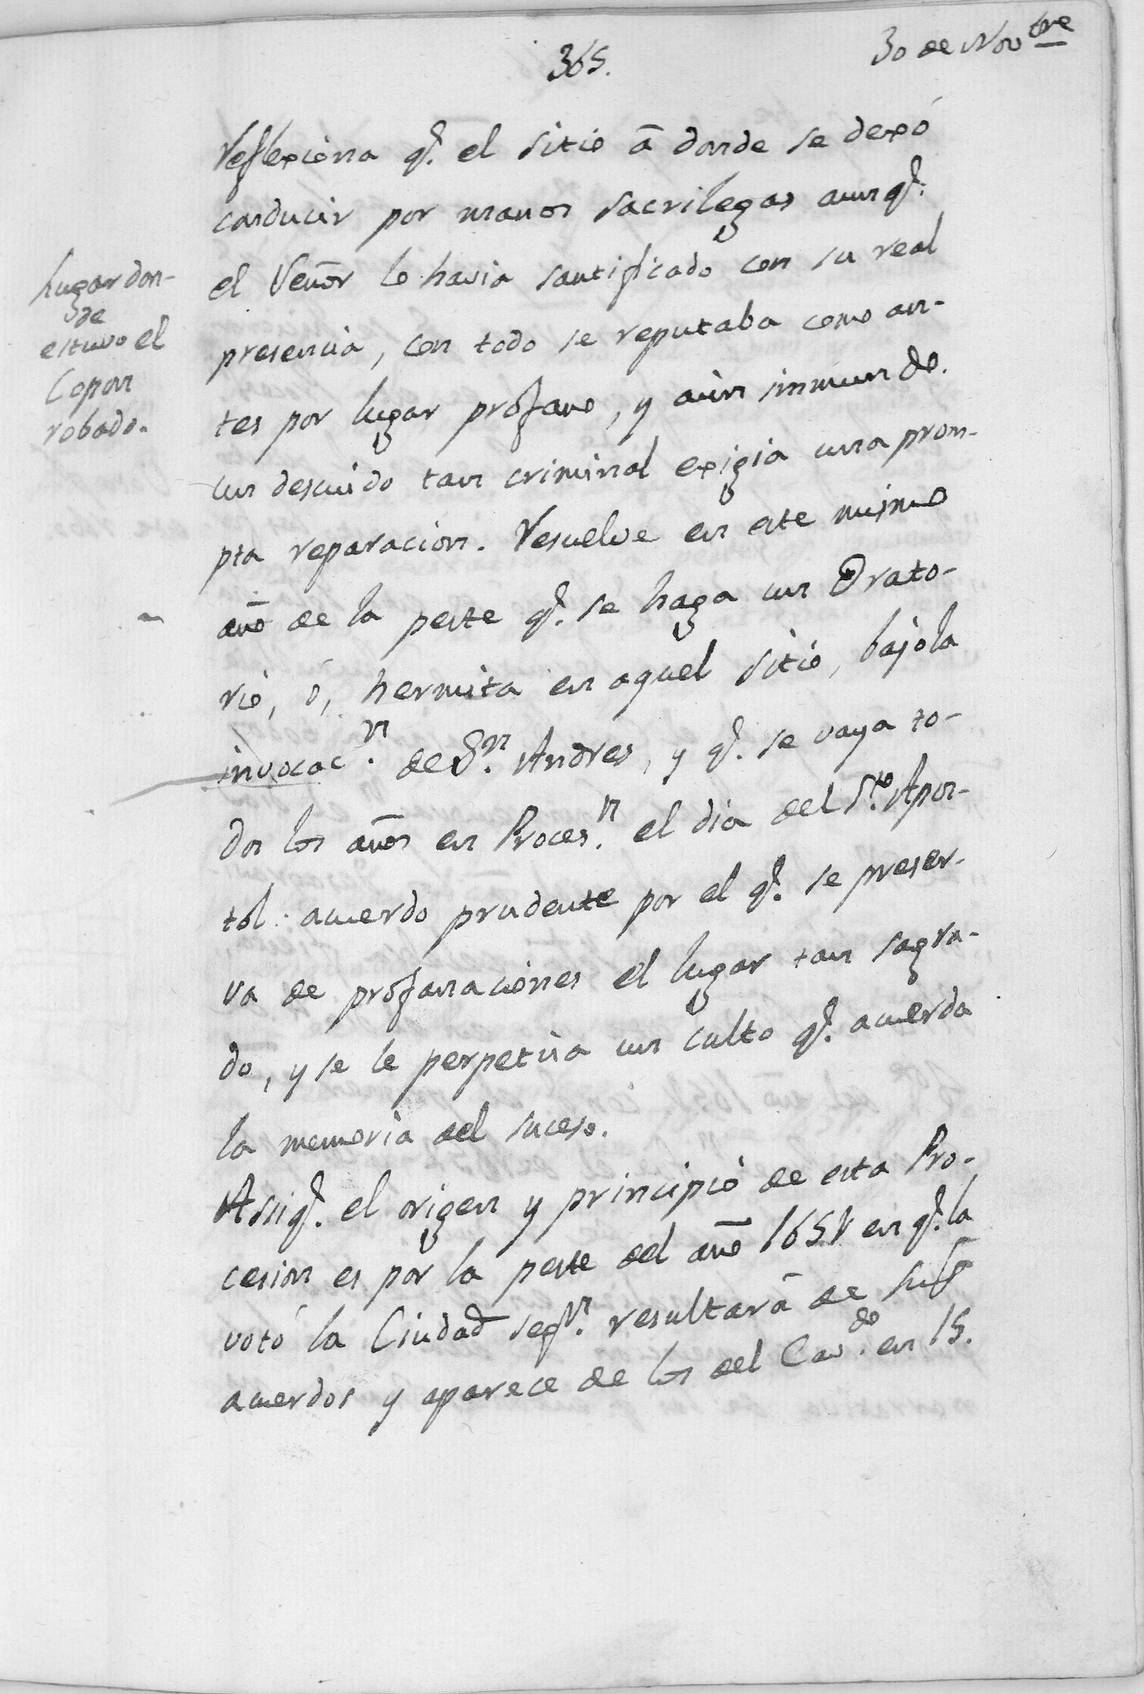 365.
30 de Nov.bre
reflexiona q.e el sitio â donde se dexó
conducir por manos sacrilegas aunq.e
el Señor lo havia santificado con su real
presencia, con todo se reputaba como an-
tes por lugar profano, y aun inmundo.
un descuido tan criminal exigia una prom-
pta reparacion. Resuelve en este mismo
año de la peste q.e se haga un Orato-
rio, ó, hermita en aquel sitio, bajo la
invocac.n de S.n Andres, y q.e se vaya to-
dos los años en Proces.n el dia del S.to Apos-
tol: acuerdo prudente por el q.e se preser-
va de profanaciones el lugar tan sagra-
do, y se le perpetúa un culto q.e acuerda
la memoria del suceso.
Assiq.e el origen y principio de esta Pro-
cesion es por la peste del año 1651 en q.e la
votó la Ciudad seg.n resultará de sus
acuerdos y aparece de los del Cav.do en 15.
Lugar don-
de
estuvo el
Copon
robado.